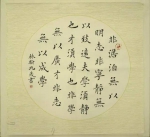 非澹泊無以
明志非寧靜無
以致遠夫學須靜
也才須學也非學
無以廣才非志
無以成學